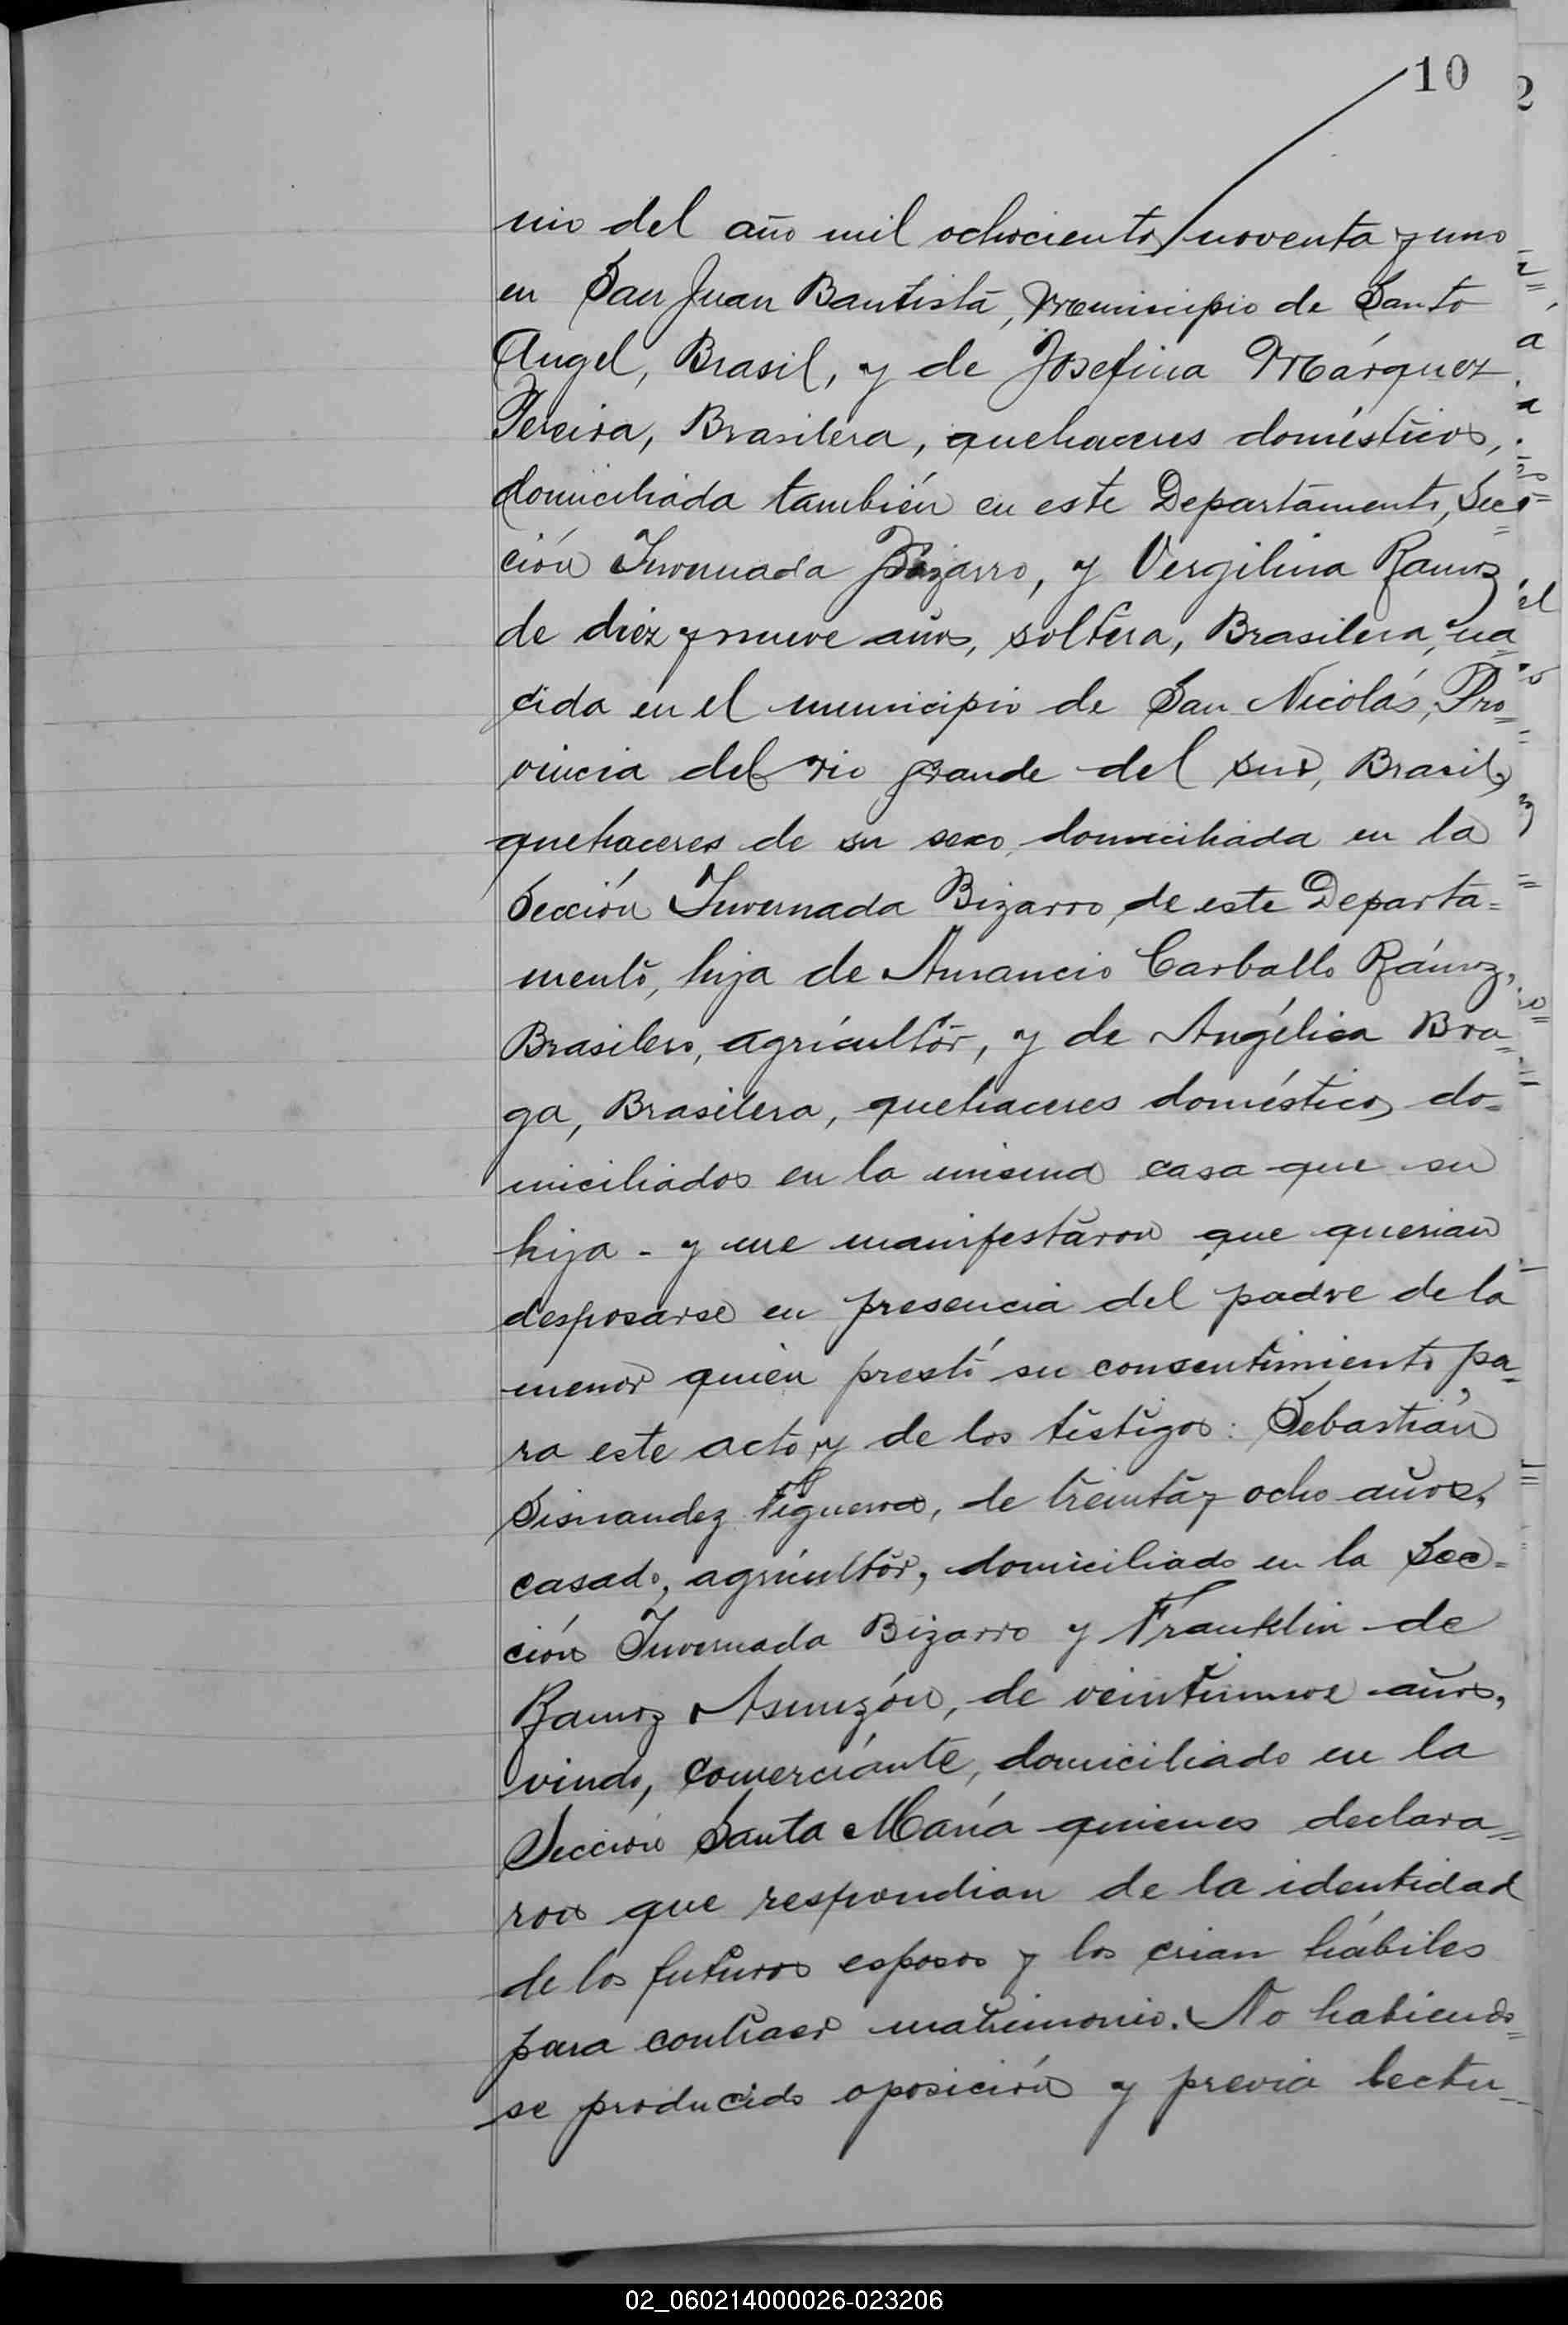 10
nio del año mil ochocientos noventa y uno
en San Juan Bautista, Municipio de Santo
Angel, Brasil, y de Josefina Márquez
Pereira, Brasilera, quehaceres domésticos,
domiciliada también en este Departamento, Sec
ción Invernada Bizarro, y Vergilina Ramoz
de diez y nueve años, soltera, Brasilera, na
cida en el municipio de San Nicolás, Pro=
vincia del rio grande del sud, Brasil,
quehaceres de su sexo, domiciliada en la
Sección Invernada Bizarro, de este Departa=
mento, hija de Amancio Carballo Rámoz,
Brasilero, agricultor, y de Angélica Bra=
ga, Brasilera, quehaceres doméstico, do=
miciliados en la misma casa que su
hija - y me manifestaron que querian
desposarse en presencia del padre de la
menor quién prestó su consentimiento pa=
ra este acto, y de los testigos: Sebastián
Sisnandez Figueroa, de treinta y ocho años,
casado, agricultor, domiciliado en la Sec=
ción Invernada Bizarro y Franklin de
Ramoz Asunzón, de veintinueve años,
viudo, comerciante, domiciliado en la
Sección Santa María quienes declara=
ron que respondian de la identidad
de los futuros esposos y los crian hábiles
para contraer matrimonio. No habiendo=
se producido oposición y previa lectu=
02_060214000026-023206